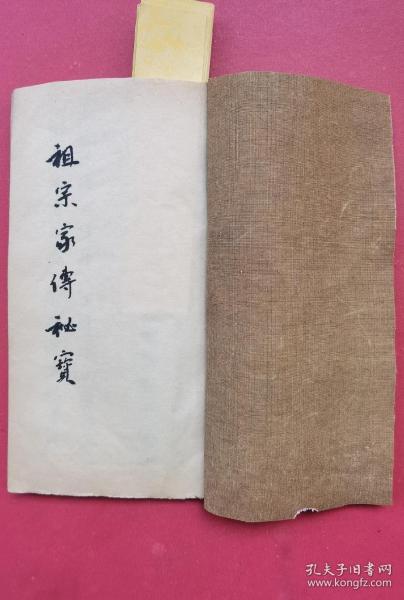 祖宗家傳秘寶
孔夫子旧书网
www.kongfz.com